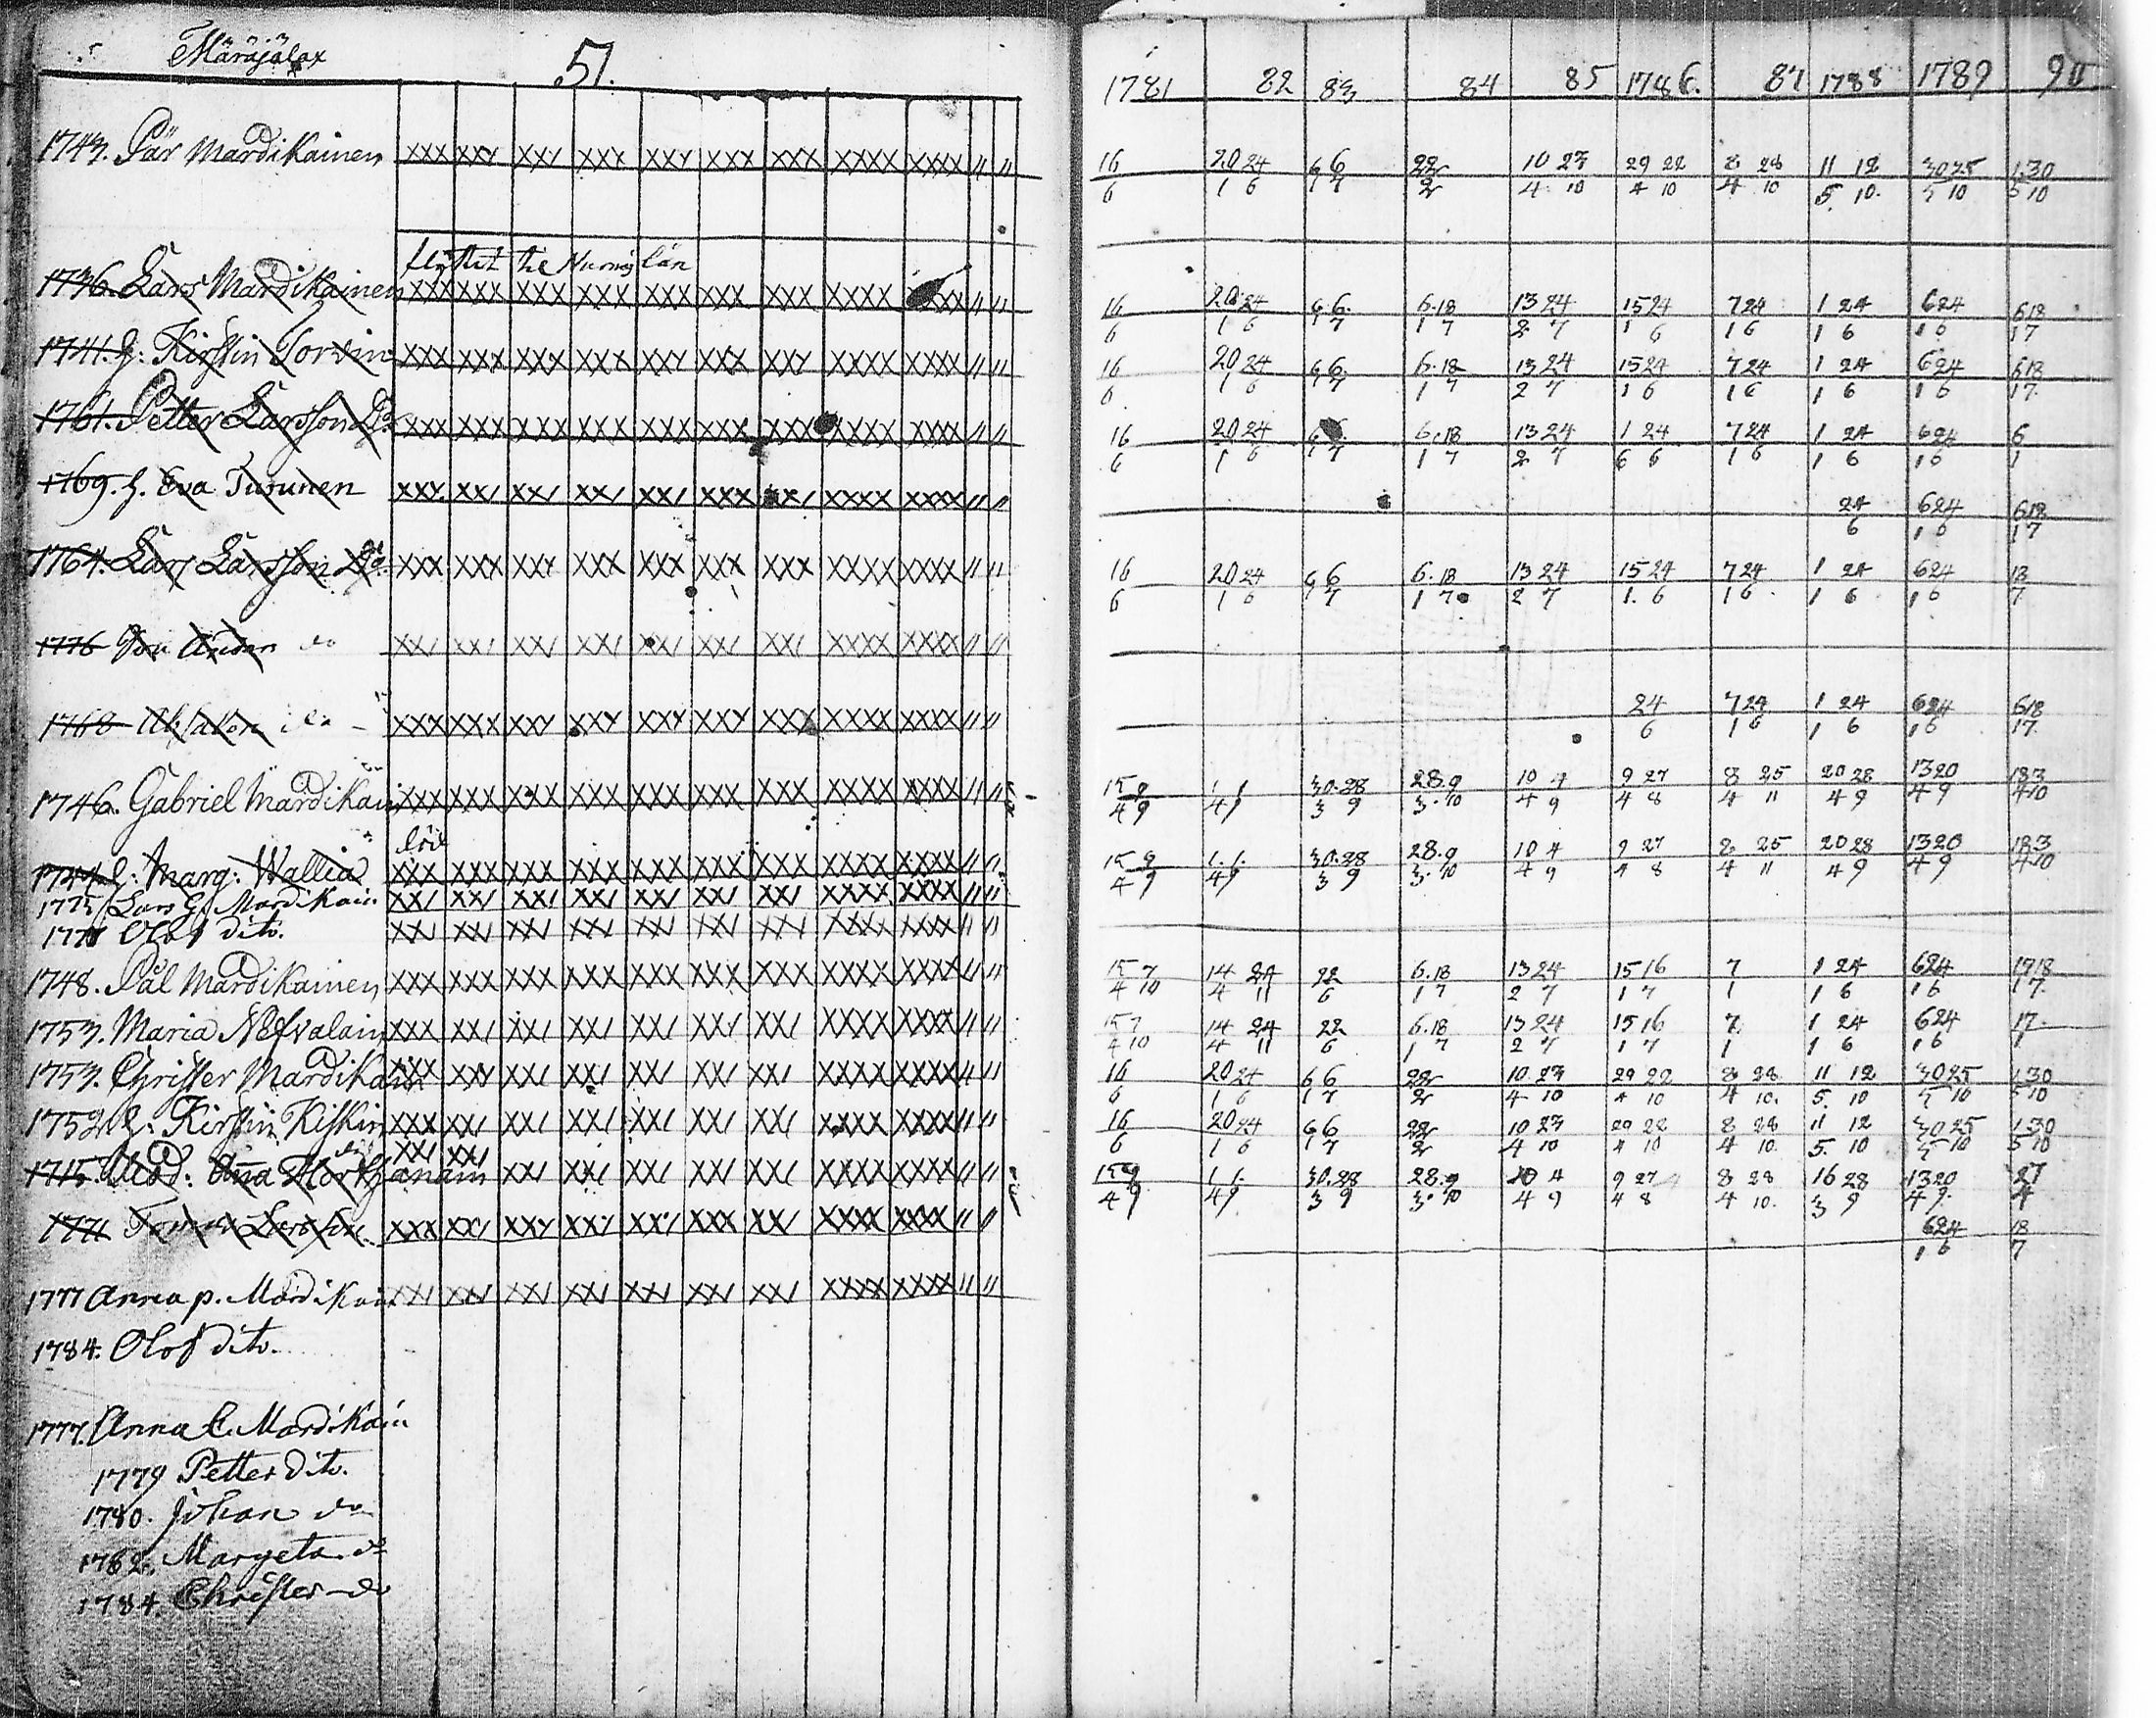 Märäjälax 51.
1781 82 83 84 85 1786. 87 1788 1789 90
1743. Pär Mardikainen xxx xxx xxx xxx xxx xxx xxx xxxx xxxx // //
16/6 20/1 24/6 6/1 6/7 22/2 10/4 23/10 29/4 22/10 8/4 28/10 11/5. 12/10. 30/5 25/10 1/5 30/10
flyttat til
1736. Lars Mardikainen xxx xxx xxx xxx xxx xxx xxx xxxx xxxx // //
16/6 20/1 24/6 6/1 6/7 6/1 18/7 13/2 24/7 15/1 24/6 7/1 24/6 1/1 24/6 6/1 24/6 6/1 18/7
1741. h: Kirstin Torvin xxx xxx xxx xxx xxx xxx xxx xxxx xxxx // //
16/6 20/1 24/6 6/1 6/7 6/1 18/7 13/2 24/7 15/1 24/6 7/1 24/6 1/1 24/6 6/1 24/6 6/1 18/7
1761. Petter Larsson Do xxx xxx xxx xxx xxx xxx xxx xxxx xxxx // //
16/6 20/1 24/6 6/1 6/7 6/1 18/7 13/2 24/7 1/6 24/6 7/1 24/6 1/1 24/6 6/1 24/6 6/1
1769. h. Eva Turunen xxx xx/ xx/ xx/ xx/ xxx xx/ xxxx xxxx // //
24/6 6/1 24/6 6/1 18/7
1764. Lars Larsson Do. xxx xxx xxx xxx xxx xxx xxx xxxx xxxx // //
16/6 20/1 24/6 6/1 6/7 6/1 18/7 13/2 24/7 15/1 24/6 7/1 24/6 1/1 24/6 6/1 24/6 18/7
1776 do xx/ xx/ xx/ xx/ xx/ xx/ xx/ xxxx xxxx // //
1768 Absalon do xxx xxx xxx xxx xxx xxx xxx xxxx xxxx // //
24/6 7/1 24/6 1/1 24/6 6/1 24/6 6/1 18/7
1746. Gabriel Mardikain xxx xxx xxx xxx xxx xxx xxx xxxx xxxx // //
15/4 9/9 1/4 1/9 30/3 28/9 28/3 9/10 10/4 4/9 9/4 27/8 8/4 25/11 20/4 28/9 13/4 20/9 18/4 3/10
död
h: Marg: Wallia xxx xxx xxx xxx xxx xxx xxx xxxx xxxx // //
15/4 9/9 1/4 1/9 30/3 28/9 28/3 9/10 10/4 4/9 9/4 27/8 8/4 25/11 20/4 28/9 13/4 20/9 18/4 3/10
1775 Lars G. Mardikain xx/ xx/ xx/ xx/ xx/ xx/ xx/ xxxx xxxx // //
Olof dito. xx/ xx/ xx/ xx/ xx/ xx/ xx/ xxxx xxxx // //
1748. Pål Mardikainen xxx xxx xxx xxx xxx xxx xxx xxxx xxxx // //
15/4 7/10 14/4 24/11 22/6 6/1 18/7 13/2 24/7 15/1 16/7 7/1 1/1 24/6 6/1 24/6 17/1 18/7
1753. Maria Nefvalain xxx xx/ xx/ xx/ xx/ xx/ xx/ xxxx xxxx // //
15/4 7/10 14/4 24/11 22/6 6/1 18/7 13/2 24/7 15/1 16/7 7/1 1/1 24/6 6/1 24/6 17/1
1753. Christer Mardikain xxx xx/ xx/ xx/ xx/ xx/ xx/ xxxx xxxx // //
16/6 20/1 24/6 6/1 6/7 22/2 10/4 23/10 29/4 22/10 8/4 28/10. 11/5. 12/10 30/5 25/10 1/5 30/10
1752 h: Kirstin Kiskin xxx xx/ xx/ xx/ xx/ xx/ xx/ xxxx xxxx // //
16/6 20/1 24/6 6/1 6/7 22/2 10/4 23/10 29/4 22/10 8/4 28/10. 11/5. 12/10 30/5 25/10 1/5 30/10
1715. Mod: Ana xx/ xx/ xx/ xx/ xx/ xx/ xx/ xxxx xxxx // //
15/4 9/9 1/4 1/9 30/3 28/9 28/3 9/10 10/4 4/9 9/4 27/8 8/4 28/10. 16/3 28/9 13/4 20/9 27/4
1771 xxx xx/ xxx xx/ xx/ xxx xx/ xxxx xxxx // //
6/1 24/6 18/7
1777 Anna p. Mardikain xx/ xx/ xx/ xx/ xx/ xx/ xx/ xxxx xxxx // //
1784. Olof dito.
1777. Anna C. Mardikain
1779 Petter dito.
1780. Johan do
1782. Margeta. do
1784. Christer do